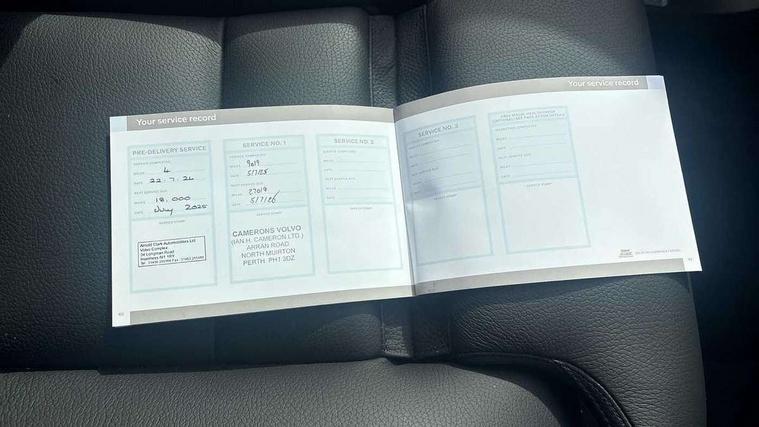 Your service record
PRE-DELIVERY SERVICE
SERVICE COMPLETED
MILES 4
DATE 22.7.24
NEXT SERVICE DUE
MILES 18,000
DATE July 2025
SERVICE STAMP
Arnold Clark Automobiles Ltd
Volvo Complex
34 Longman Road
Inverness IV1 1RY
SERVICE NO. 1
SERVICE COMPLETED
MILES 9019
DATE 5/7/25
NEXT SERVICE DUE
MILES 27019
DATE 5/7/26
SERVICE STAMP
CAMERONS VOLVO
(IAN H. CAMERON LTD.)
ARRAN ROAD
NORTH MUIRTON
PERTH PH1 3DZ
SERVICE NO. 2
SERVICE COMPLETED
MILES
DATE
NEXT SERVICE DUE
MILES
DATE
SERVICE STAMP
Your service record
SERVICE NO. 3
SERVICE COMPLETED
MILES
DATE
NEXT SERVICE DUE
MILES
DATE
SERVICE STAMP
NEXT SERVICE DUE
MILES
DATE
SERVICE STAMP